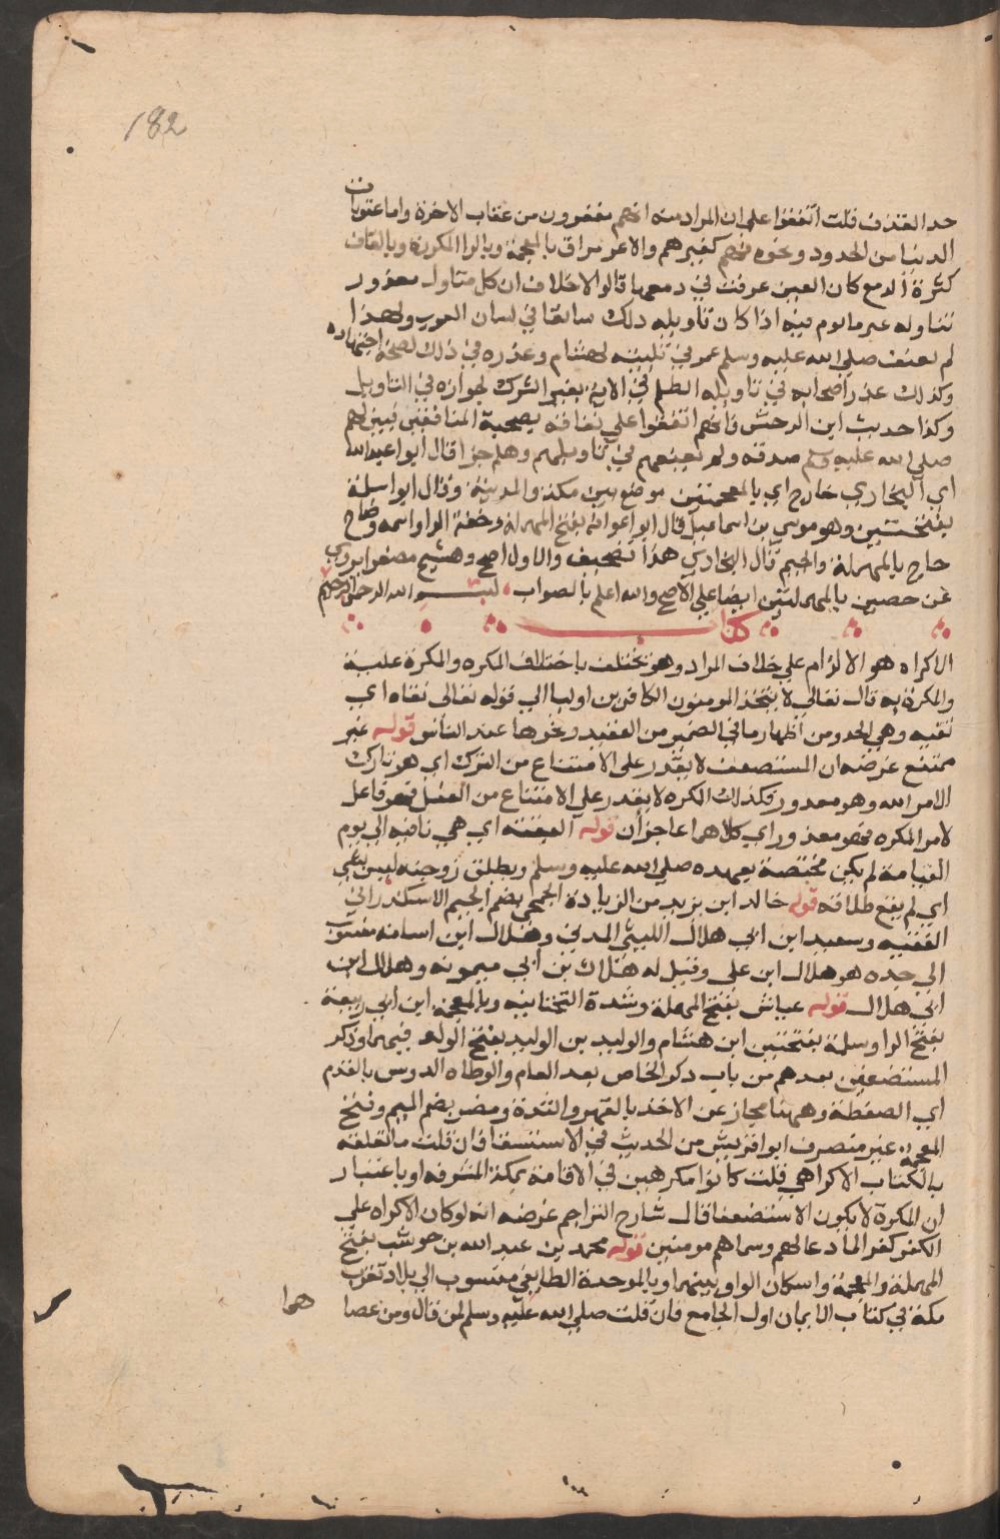 182
حد القذف قلت اتفقوا على ان المراد منه انهم مغفورون من عقاب الاخرة واما عقوبات
الدنيا من الحدود ونحوه فهم كغيرهم والاغرورراق بالمعجمة وبالراا المكررة وبالقاف
كثرة الدمع كان العين غرقت في دمعها قالوا لا خلاف ان كل متاول معذور
بتاوله غير ماثوم فيه اذا كان تاويله ذلك سائغا في لسان العرب ولهذا
لم يعنف صلى الله عليه وسلم عمر في تلبيبه لهشام وعذره في ذلك لصحة اجتهاده
وكذلك عذر اصحابه في تاويله الظلم في الاية بغير الشرك لجوازه في التاويل
وكذا حديث ابن الدخشن فانهم اتفقوا على نفاقه بصحبة المنافقين فبين لهم
صلى الله عليه وسلم صدقه ولم يعنفهم في تاويلهم وهلم جرا قال ابو عبد الله
اي البخاري خاخ اي بالمعجمتين موضع بين مكة والمدينة وقال ابو سلمة
بفتحتين وهو موسى بن اسماعيل قال ابو عوانة بفتح المهملة وخفة الواو اسمه وضاح
حاج بالمهملة والجيم قال البخاري هذا تصحيف والاول اصح وهشيم مصغرا يروي
عن حصين بالمهملتين ايضا على الاصح والله اعلم بالصواب بسم الله الرحمن الرحيم
كتاب
الاكراه هو الالزام على خلاف المراد وهو يختلف باختلاف المكره والمكره عليه
والمكره به قال تعالى لا يتخذ المومنون الكافرين اوليا الى قوله تعالى تقاه اي
تقيه وهي الحذر من اظهار ما في الضمير من العقيدة ونحوها عند الناس قوله غير
ممتنع غرضه ان المستضعف لا يقدر على الامتناع من الترك اي هو تارك
لامر الله وهو معذور فكذلك المكره لا يقدر على الامتناع من الفعل فهو فاعل
لامر المكره فهو معذور اي كلاهما عاجزان قوله التقية اي هي ثابتة الى يوم
القيامة لم يكن مختصة بعهده صلى الله عليه وسلم ويطلق زوجته ليس بشي
اي لم يقع طلاقه قوله خالد ابن يزيد من الزيادة الجمحي بضم الجيم الاسكندراني
الفقيه وسعيد ابن ابي هلال الليثي المدني وهلال ابن اسامة منسوب
الى جده هو هلال ابن علي وقيل له هلال بن ابي ميمونة وهلال ابن
ابي هلال قوله عياش بفتح المهملة وشدة التحتانية وبالمعجمة ابن ابي ربيعة
بفتح الرا وسلمة بفتحتين ابن هشام والوليد بن الوليد بفتح الواو فيهما وذكر
المستضعفين بعدهم من باب ذكر الخاص بعد العام والوطاه الدوس بالقدم
اي الضغطة وههنا مجاز عن الاخذ بالقهر والشدة ومضر بضم الميم وفتح
المعجمة غير منصرف ابو اقريش من الحديث في الاستسقا فان قلت ما تعلقه
بالكتاب الاكراهي قلت كانوا مكرهين في الاقامة بمكة المشرفه او باعتبار
ان المكره لا يكون الا مستضعفا قال شارح التراجم غرضه انه لو كان الاكراه على
الكفر كفرا لما دعا لهم وسماهم مومنين قوله محمد بن عبد الله بن حوشب بفتح
المهملة والمعجمة واسكان الواو بينهما وبالموحدة الطائفي منسوب الى بلاد تقرب
مكة في كتاب الايمان اول الجامع فان قلت صلى الله عليه وسلم لمن قال ومن عصا
هما